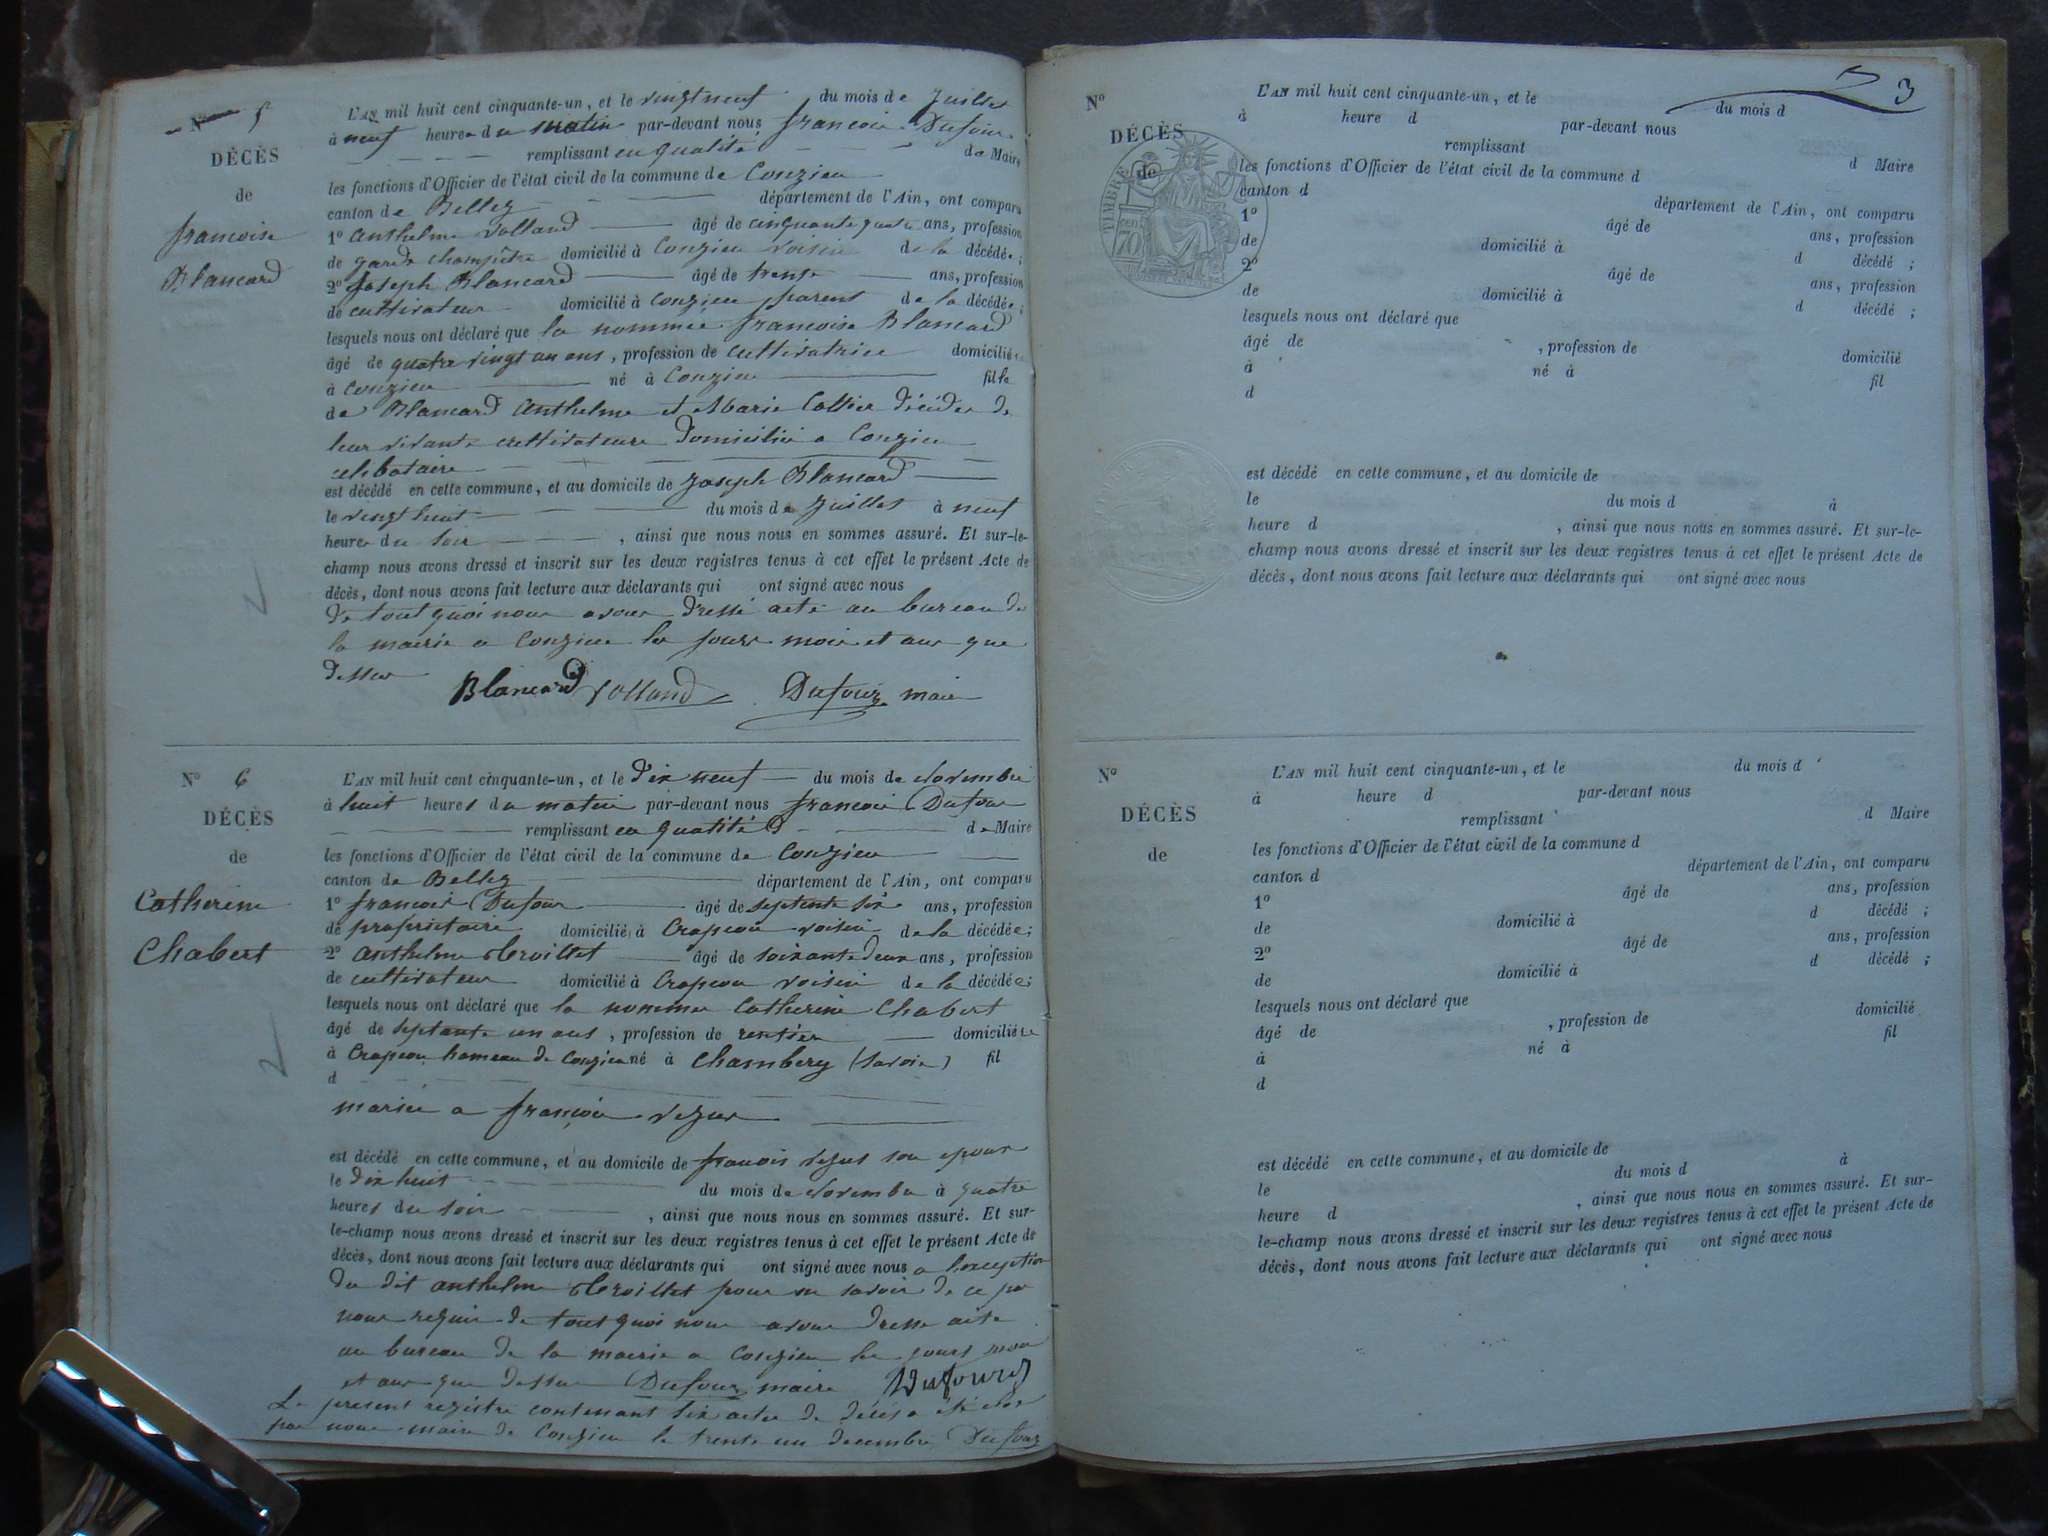 N° 5
DÉCÈS
de
francoise
Blancard
L'AN mil huit cent cinquante-un, et le vingt neuf du mois de Juillet
à neuf heures du matin par-devant nous francois Dufour
remplissant en qualité de Maire
les fonctions d'Officier de l'état civil de la commune de Conzieu
canton de Belley département de l'Ain, ont comparu
1° anthelme Volland âgé de cinquante quatre ans, profession
de garde champêtre domicilié à Conzieu voisin de la décédée ;
2° Joseph Blancard âgé de trente ans, profession
de cultivateur domicilié à Conzieu parent de la décédée ;
lesquels nous ont déclaré que la nommée francoise Blancard
âgé de quatre vingt un ans, profession de cultivatrice domiciliée
à Conzieu né à Conzieu fille
de Blancard anthelme et Marie décédés de
leur vivant cultivateurs domicilié a Conzieu
celibataire
est décédé en cette commune, et au domicile de Joseph Blancard
le vingt huit du mois de Juillet à neuf
heures du soir , ainsi que nous nous en sommes assuré. Et sur-le-
champ nous avons dressé et inscrit sur les deux registres tenus à cet effet le présent Acte de
décès, dont nous avons fait lecture aux déclarants qui ont signé avec nous
de tout quoi nous avons dressé acte au bureau de
la mairie a Conzieu les jours mois et ans que
dessus
Blancard Volland Dufour maire
N° 6
DÉCÈS
de
Catherine
Chabert
L'AN mil huit cent cinquante-un, et le dix neuf du mois de Novembre
à huit heures du matin par-devant nous francois Dufour
remplissant en qualité de Maire
les fonctions d'Officier de l'état civil de la commune de Conzieu
canton de Belley département de l'Ain, ont comparu
1° francois Dufour âgé de septante six ans, profession
de propriétaire domicilié à Crapeou voisin de la décédée ;
2° anthelme âgé de soixante deux ans, profession
de cultivateur domicilié à Crapeou voisin de la décédée ;
lesquels nous ont déclaré que la nommee Catherine Chabert
âgé de septante un ans, profession de rentier domiciliée
à Crapeou hameau de Conzieu né à Chambery (Savoie) fil
d
mariée a françois
est décédé en cette commune, et au domicile de francois son epoux
le dix huit du mois de Novembre à quatre
heures du soir , ainsi que nous nous en sommes assuré. Et sur-
le-champ nous avons dressé et inscrit sur les deux registres tenus à cet effet le présent Acte de
décès, dont nous avons fait lecture aux déclarants qui ont signé avec nous a lexception
du dit anthelme pour ne savoir de ce par
nous requis de tout quoi nous avons dresse acte
au bureau de la mairie a Conzieu les jours mois
et ans que dessus Dufour maire Dufour
Le present registre contenant six actes de décés a été clos
par nous maire de Conzieu le trente un decembre Dufour
3
N°
DÉCÈS
de
TIMBRE
70
L'AN mil huit cent cinquante-un, et le du mois d
à heure d par-devant nous
remplissant d Maire
les fonctions d'Officier de l'état civil de la commune d
canton d département de l'Ain, ont comparu
1° âgé de ans, profession
de domicilié à d décédé ;
2° âgé de ans, profession
de domicilié à d décédé ;
lesquels nous ont déclaré que
âgé de , profession de domicilié
à né à fil
d
est décédé en cette commune, et au domicile de
le du mois d à
heure d , ainsi que nous nous en sommes assuré. Et sur-le-
champ nous avons dressé et inscrit sur les deux registres tenus à cet effet le présent Acte de
décès, dont nous avons fait lecture aux déclarants qui ont signé avec nous
N°
DÉCÈS
de
L'AN mil huit cent cinquante-un, et le du mois d
à heure d par-devant nous
remplissant d Maire
les fonctions d'Officier de l'état civil de la commune d
canton d département de l'Ain, ont comparu
1° âgé de ans, profession
de domicilié à d décédé ;
2° âgé de ans, profession
de domicilié à d décédé ;
lesquels nous ont déclaré que
âgé de , profession de domicilié
à né à fil
d
est décédé en cette commune, et au domicile de
le du mois d à
heure d , ainsi que nous nous en sommes assuré. Et sur-
le-champ nous avons dressé et inscrit sur les deux registres tenus à cet effet le présent Acte de
décès, dont nous avons fait lecture aux déclarants qui ont signé avec nous